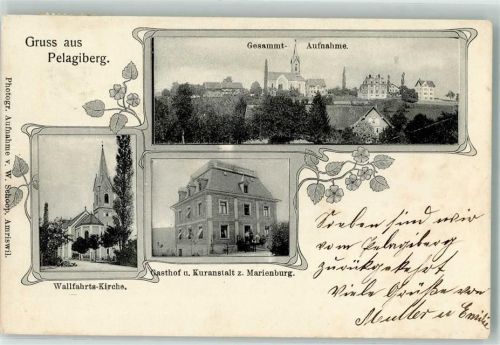 Gruss aus
Pelagiberg.
Gesammt-Aufnahme.
Photogr. Aufnahme v. W. Schoop, Amriswil.
Wallfahrts-Kirche.
Gasthof u. Kuranstalt z. Marienburg.
Soeben sind wir
vom Pelagiberg
zurückgekehrt
Viele Grüße von
Mutter u Emilie